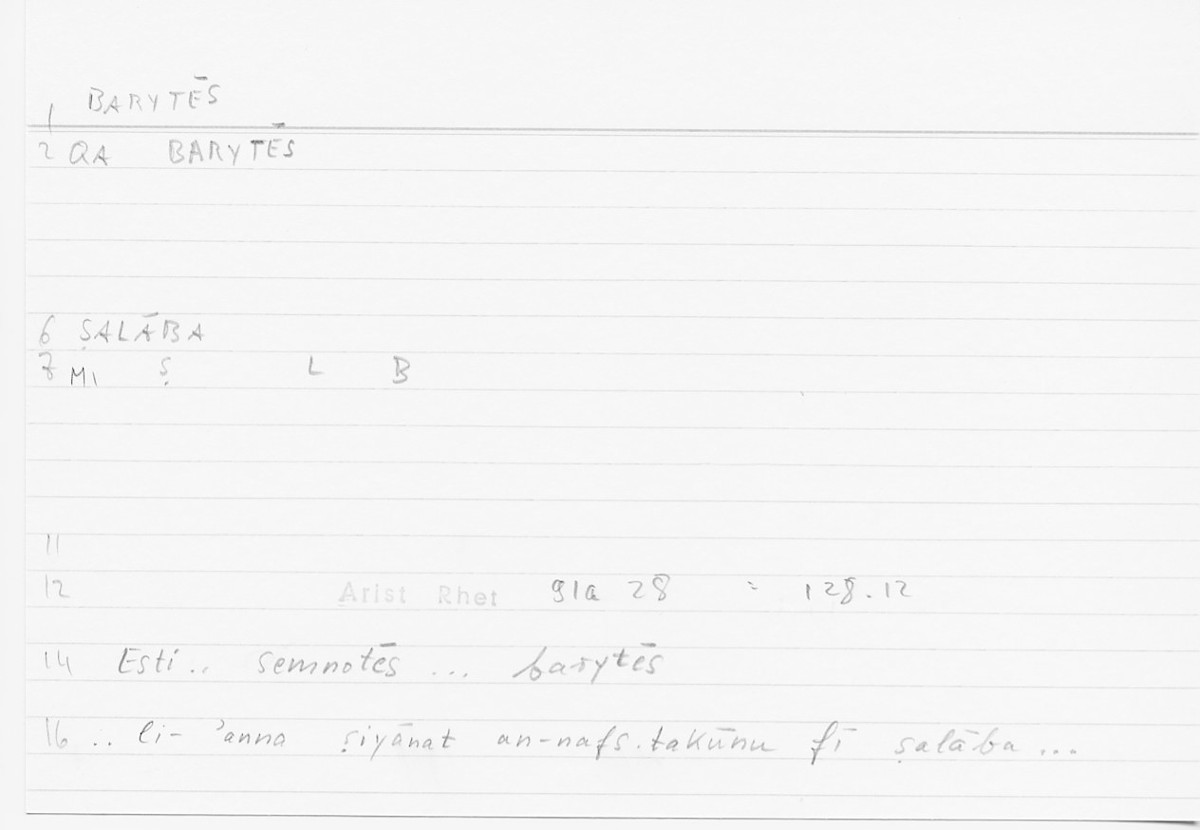 1 BARYTĒS
2 QA BARYTĒS
6 ṢALĀBA
7 MI Ṣ L B
11
12 Arist Rhet 91a 28 = 128.12
14 Esti.. semnotēs ... barytēs
16 .. li- ʾanna ṣiyānat an-nafs.takūnu fī ṣalāba ...